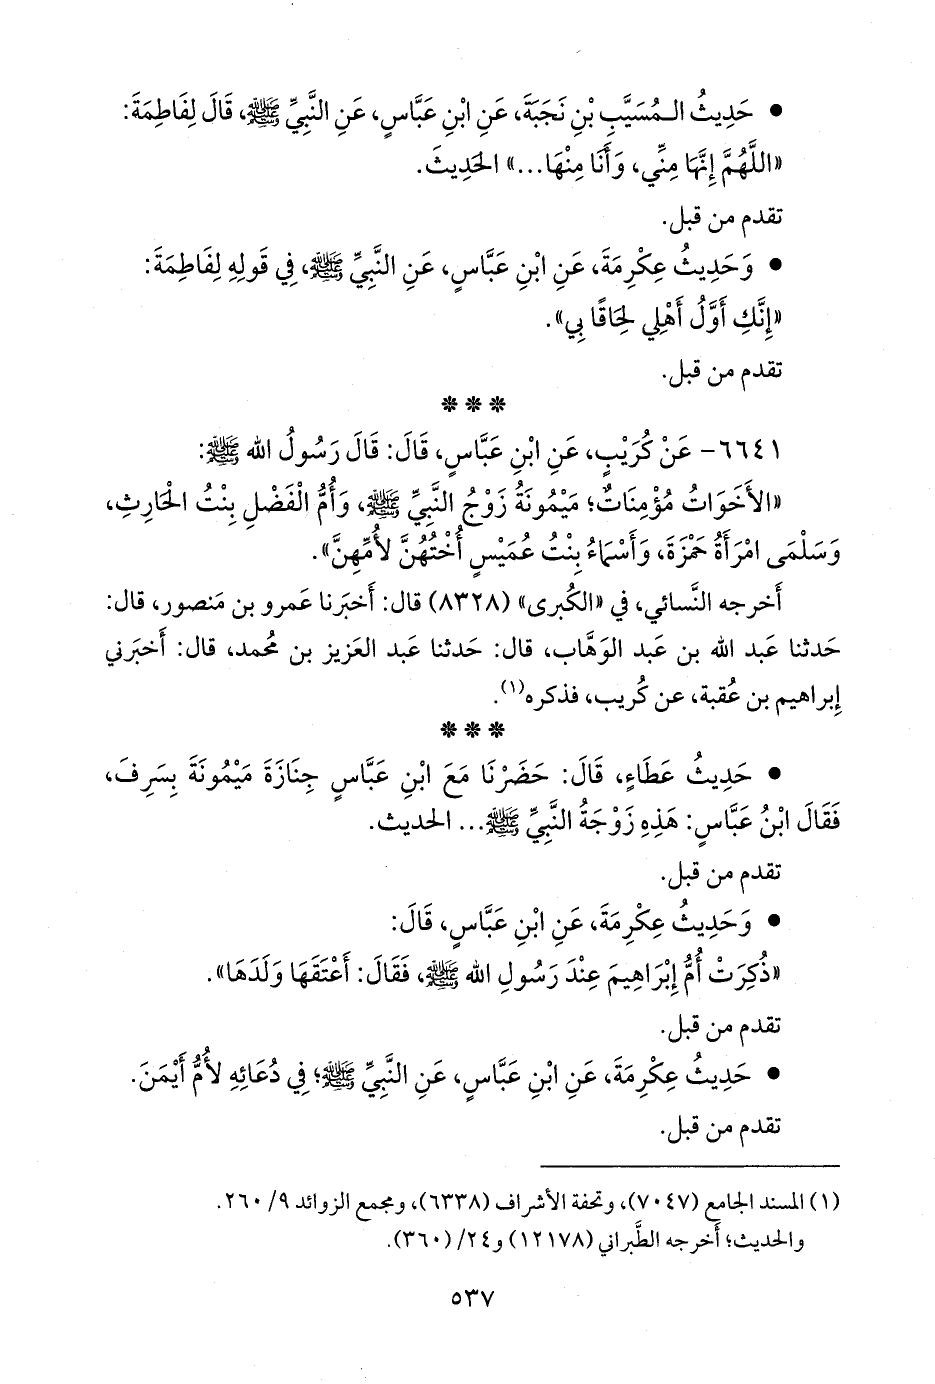 • حَدِيثُ الـمُسَيَّبِ بْنِ نَجَبَةَ، عَنِ ابْنِ عَبَّاسٍ، عَنِ النَّبِيِّ ﷺ، قَالَ لِفَاطِمَةَ:
«اللَّهُمَّ إِنَّهَا مِنِّي، وَأَنَا مِنْهَا...» الحَدِيثَ.
تقدم من قبل.
• وَحَدِيثُ عِكْرِمَةَ، عَنِ ابْنِ عَبَّاسٍ، عَنِ النَّبِيِّ ﷺ، فِي قَوْلِهِ لِفَاطِمَةَ:
«إِنَّكِ أَوَّلُ أَهْلِي لِحَاقًا بِي».
تقدم من قبل.
* * *
٦٦٤١- عَنْ كُرَيْبٍ، عَنِ ابْنِ عَبَّاسٍ، قَالَ: قَالَ رَسُولُ الله ﷺ:
«الأَخَوَاتُ مُؤْمِنَاتٌ؛ مَيْمُونَةُ زَوْجُ النَّبِيِّ ﷺ، وَأُمُّ الْفَضْلِ بِنْتُ الْحَارِثِ،
وَسَلْمَى امْرَأَةُ حَمْزَةَ، وَأَسْمَاءُ بِنْتُ عُمَيْسٍ أُخْتُهُنَّ لأُمِّهِنَّ».
أَخرجه النَّسائي، في «الكُبرى» (٨٣٢٨) قال: أَخبَرنا عَمرو بن مَنصور، قال:
حَدثنا عَبد الله بن عَبد الوَهَّاب، قال: حَدثنا عَبد العَزيز بن مُحمد، قال: أَخبَرني
إِبراهيم بن عُقبة، عن كُريب، فذكره(١).
* * *
• حَدِيثُ عَطَاءٍ، قَالَ: حَضَرْنَا مَعَ ابْنِ عَبَّاسٍ جِنَازَةَ مَيْمُونَةَ بِسَرِفَ،
فَقَالَ ابْنُ عَبَّاسٍ: هَذِهِ زَوْجَةُ النَّبِيِّ ﷺ... الحديث.
تقدم من قبل.
• وَحَدِيثُ عِكْرِمَةَ، عَنِ ابْنِ عَبَّاسٍ، قَالَ:
«ذُكِرَتْ أُمُّ إِبْرَاهِيمَ عِنْدَ رَسُولِ الله ﷺ، فَقَالَ: أَعْتَقَهَا وَلَدَهَا».
تقدم من قبل.
• حَدِيثُ عِكْرِمَةَ، عَنِ ابْنِ عَبَّاسٍ، عَنِ النَّبِيِّ ﷺ؛ فِي دُعَائِهِ لأُمُّ أَيْمَنَ.
تقدم من قبل.
(١) المسند الجامع (٧٠٤٧)، وتحفة الأشراف (٦٣٣٨)، ومجمع الزوائد ٩/ ٢٦٠.
والحديث؛ أَخرجه الطَّبراني (١٢١٧٨) و٢٤/ (٣٦٠).
٥٣٧